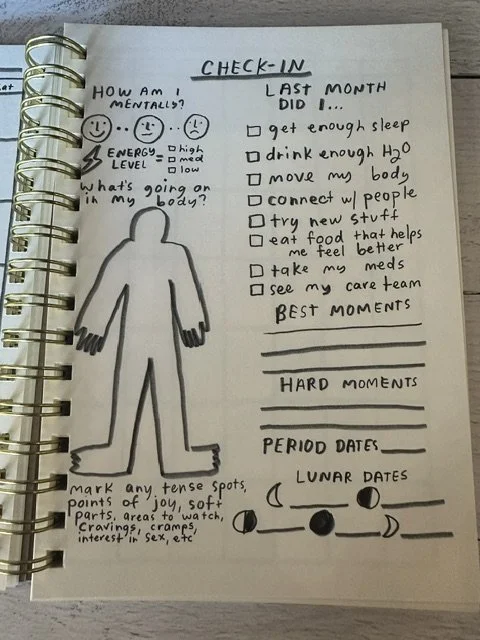 CHECK-IN
HOW AM I
MENTALLY?
ENERGY
LEVEL =
high
med
low
What's going on
in my body?
mark any tense spots,
points of joy, soft
parts, areas to watch,
Cravings, cramps,
interest in sex, etc
LAST MONTH
DID I...
get enough sleep
drink enough H2O
move my body
connect w/ people
try new stuff
eat food that helps
me feel better
take my meds
see my care team
BEST MOMENTS
HARD MOMENTS
PERIOD DATES
LUNAR DATES